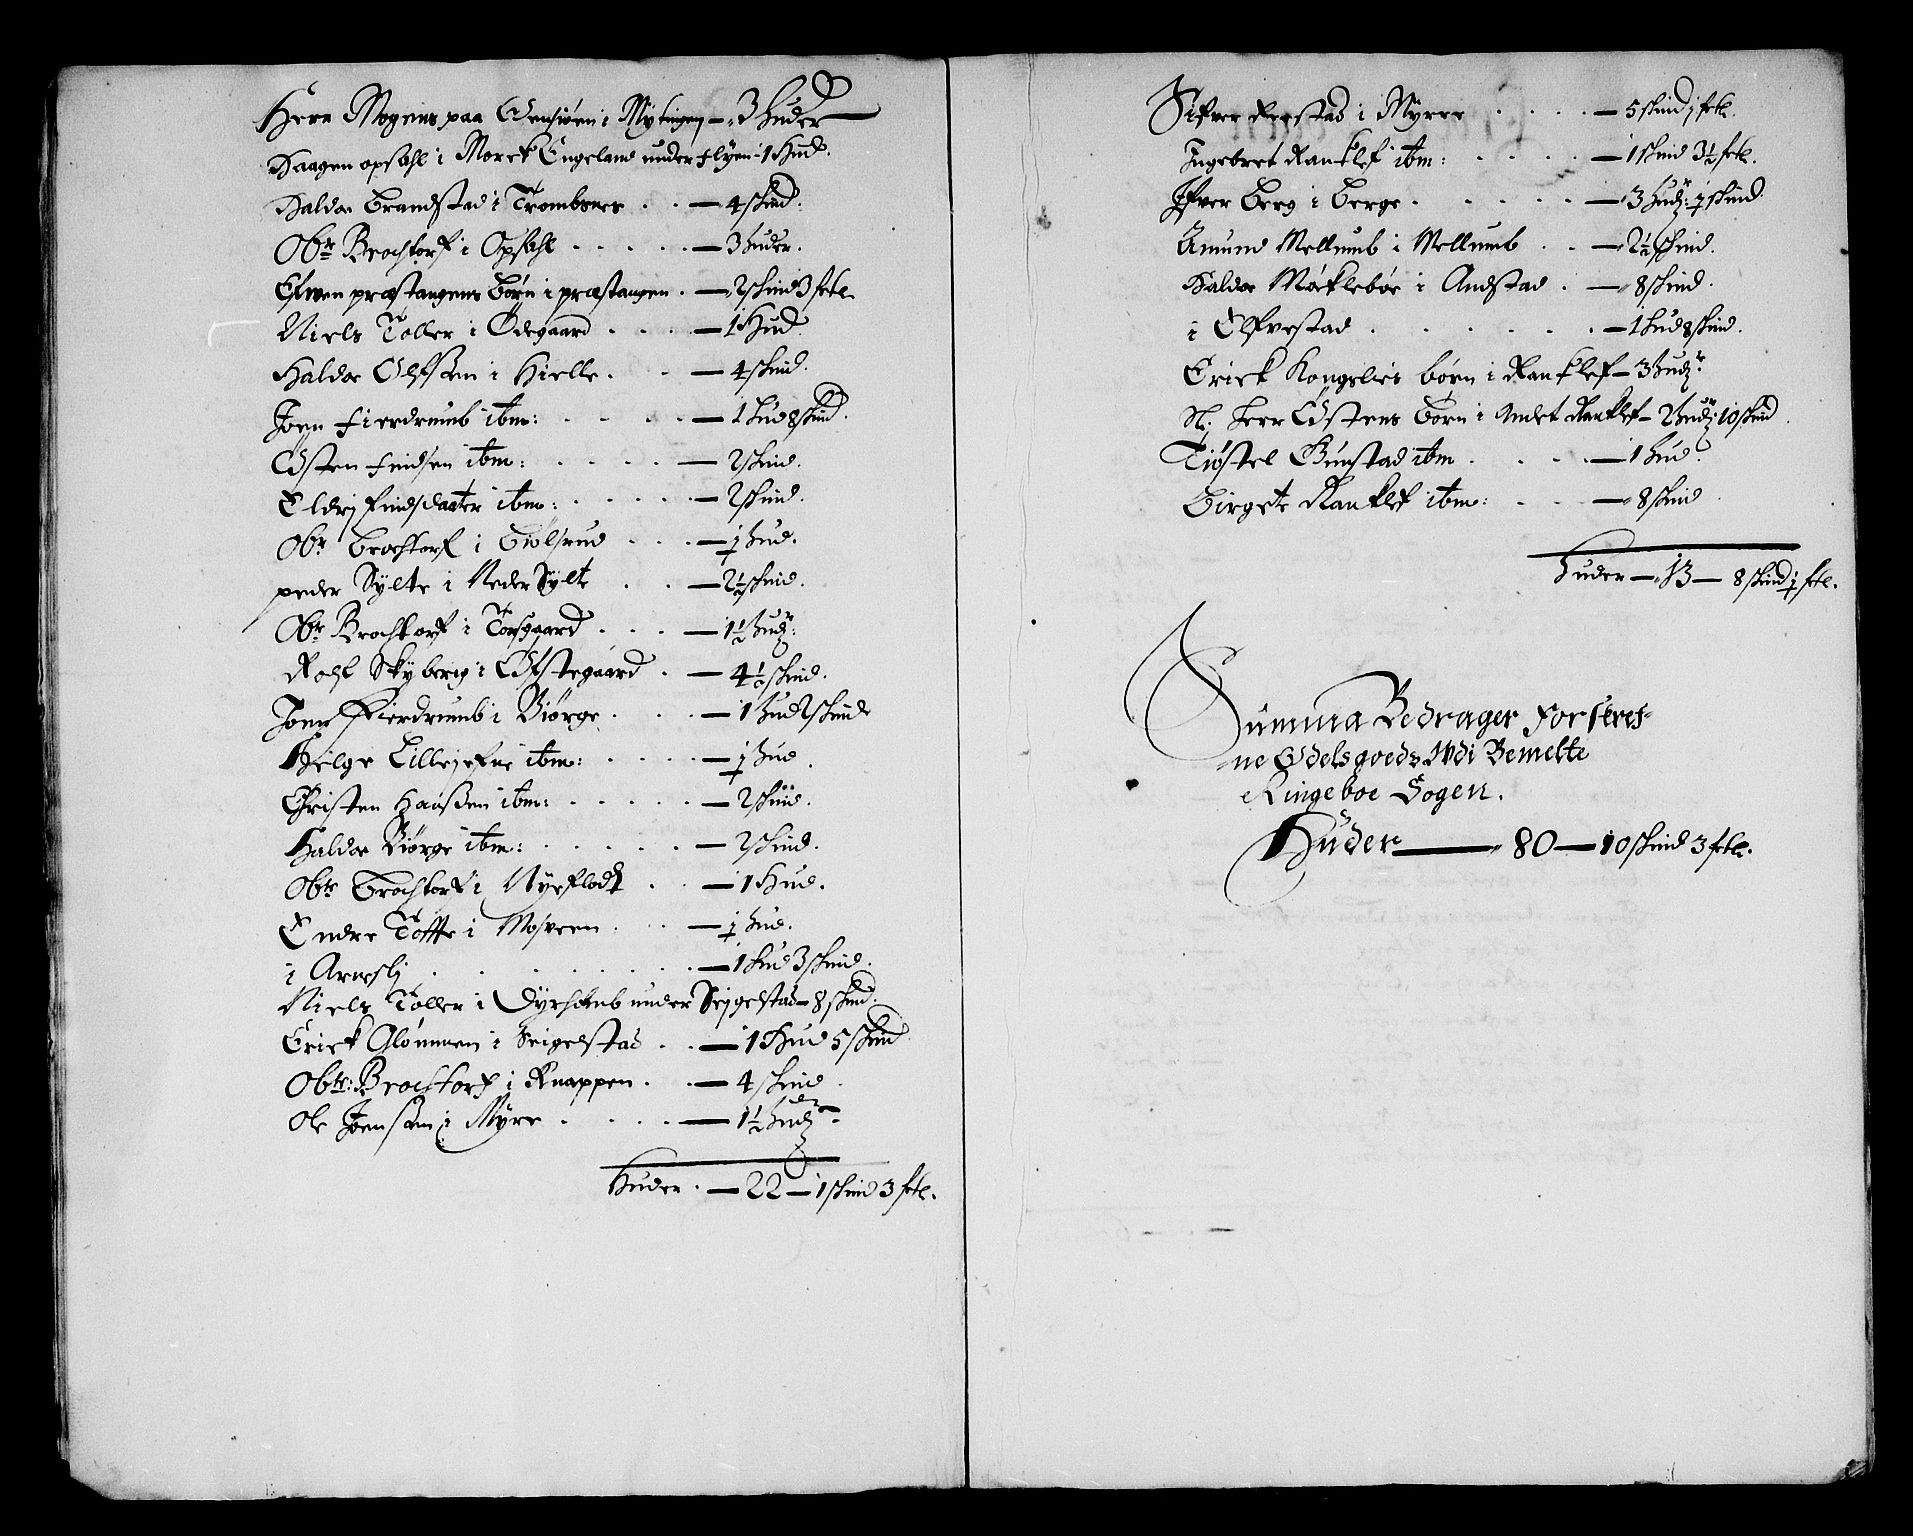 Herr Mogens paa Gensiøen i Mytingen — 3 huder
Haagen opsahl i Morck Engeland under Flyen - 1 Hud.
Haldor Brandstad i Trombsnes . . — 4 skind.
Obr Brochtorf i Opsahl . . . . . — 3 huder.
Elven præstangens Børn i præstangen . — 2 skind 3 fctl.
Niels Toller i Ødegaard . . . . — 1 Hud.
Haldor Olfsøn i Hielle . . . — 4 skind.
Joen Fierdrumb ibm: . . . . — 1 hud 8 skind.
Østen Findsen ibm: . . . . — 2 skind.
Eldrj Findsdaater ibm: . . . . — 2 skind.
Obr Brochtorf i Giølsrud . . . — ½ hud.
peder Sylte i Neder Sylte . . . — 2½ skind.
Obr Brochtorf i Torsgaard . . . — 1½ hudr:
Rolf Skyberg i Øfstegaard . — 4½ skind.
Joen Fierdrumb i Biørge . . . . — 1 hud 2 skind
Helge Lillejefne ibm: . . . . — ½ hud.
Christen Hansßen ibm: . . . . . — 2 skind.
Haldor Biørge ibm: . . . . . — 2 skind.
Obte Brochtorf i Nyeflodt . . — 1 Hud.
Endre Toffte i Mosveen . . . — ½ hud.
i Arneslj . . . . . . . — 1 hud 3 skind.
Niels Toller i Dyrhoub under Seygelstad — 8 skind.
Erick Glømmen i Seigelstad . . — 1 Hud 5 skind
Obte: Brochtorf i Knappen . . — 4 skind .
Ole Joensøn i Myre . . . . — 1½ hudr
Huder . — 22 — 1 skind 3 fctl.
Sifver Reestad i Myrre . . . . — 5 skind ½ fctl.
Ingebret Rancklef ibm: . . . . — 1 skind 3½ fctl.
Ifver Berg i Berge . . . . . — 3 hudr: ½ skind.
Amund Mellumb i Mellumb . . — 2½ skind.
Haldor Mørcklebøe i Andstad . — 8 skind.
i Elfvestad . . . . . . . — 1 hud 8 skind.
Erick Kongelies børn i Rancklef — 3 hudr
Sl: herr Østens Børn i Andet Rancklef — 2 hudr 10 skind
Tiøstel Gunstad ibm . . . . — 1 hud.
Birgete Rancklef ibm: . . . — 8 skind
Huder — 13 — 8 skind ½ fctl.
Summa Bedrager Forscres-
ne Odelsgoeds Udi Bemelte
Ringeboe Sogen.
Huder — 80 — 10 skind 3 fctl.